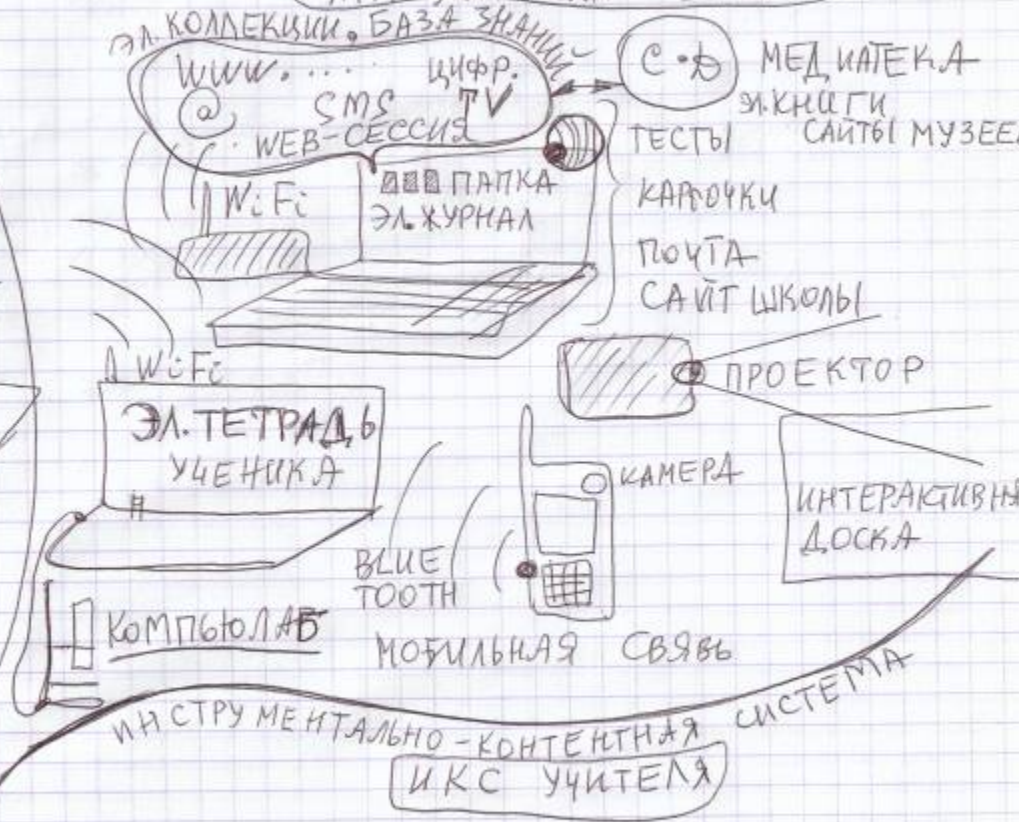 ЭЛ. КОЛЛЕКЦИИ, БАЗА ЗНАНИЙ
WWW. . . . . . ЦИФР.
@ SMS TV
WEB-СЕССИЯ
C·D
МЕДИАТЕКА
ЭЛ.КНИГИ
САЙТЫ МУЗЕЕ
ТЕСТЫ
КАРТОЧКИ
ПОЧТА
САЙТ ШКОЛЫ
WiFi
ПАПКА
ЭЛ.ЖУРНАЛ
WiFi
ПРОЕКТОР
ЭЛ.ТЕТРАДЬ
УЧЕНИКА
КАМЕРА
ИНТЕРАКТИВНА
ДОСКА
BLUE
TOOTH
КОМПЬЮЛАБ
МОБИЛЬНАЯ СВЯЗЬ
ИНСТРУМЕНТАЛЬНО-КОНТЕНТНАЯ СИСТЕМА
ИКС УЧИТЕЛЯ